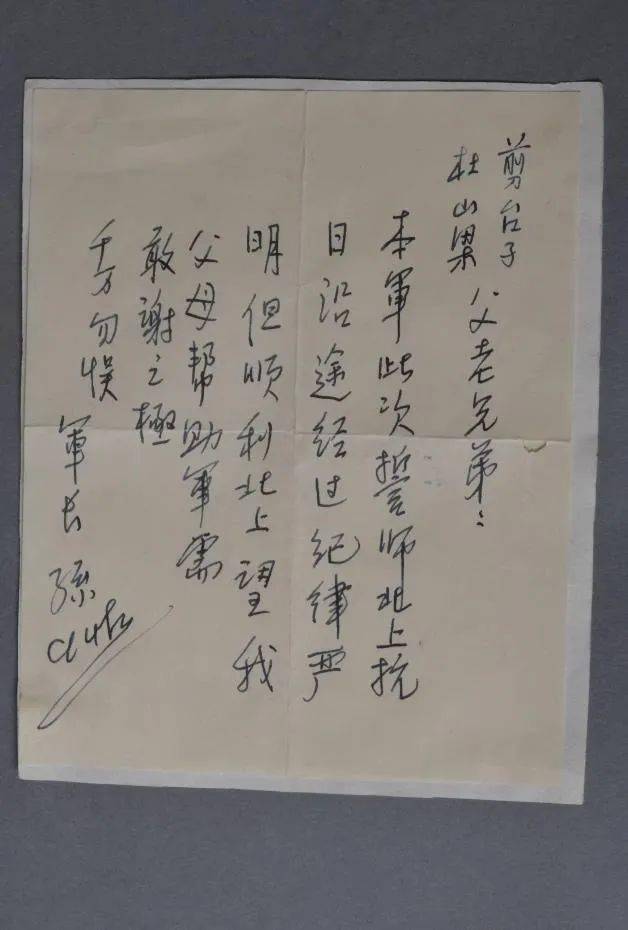 剪台子
杜山梁 父老兄弟：
本軍此次誓师北上抗
日沿途经过纪律严
明但顺利北上望我
父母帮助軍需
敢謝之極
千万勿悮
軍长 孫